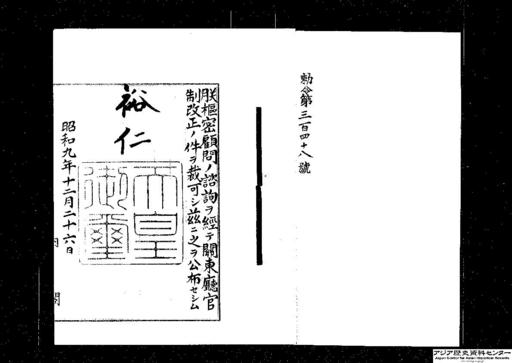 勅令第三百四十八號
朕樞密顧問ノ諮詢ヲ經テ關東廳官
制改正ノ件ヲ裁可シ茲ニ之ヲ公布セシム
裕仁
天皇
御璽
昭和九年十二月二十六日
アジア歴史資料センター
Japan Center for Asian Historical Records